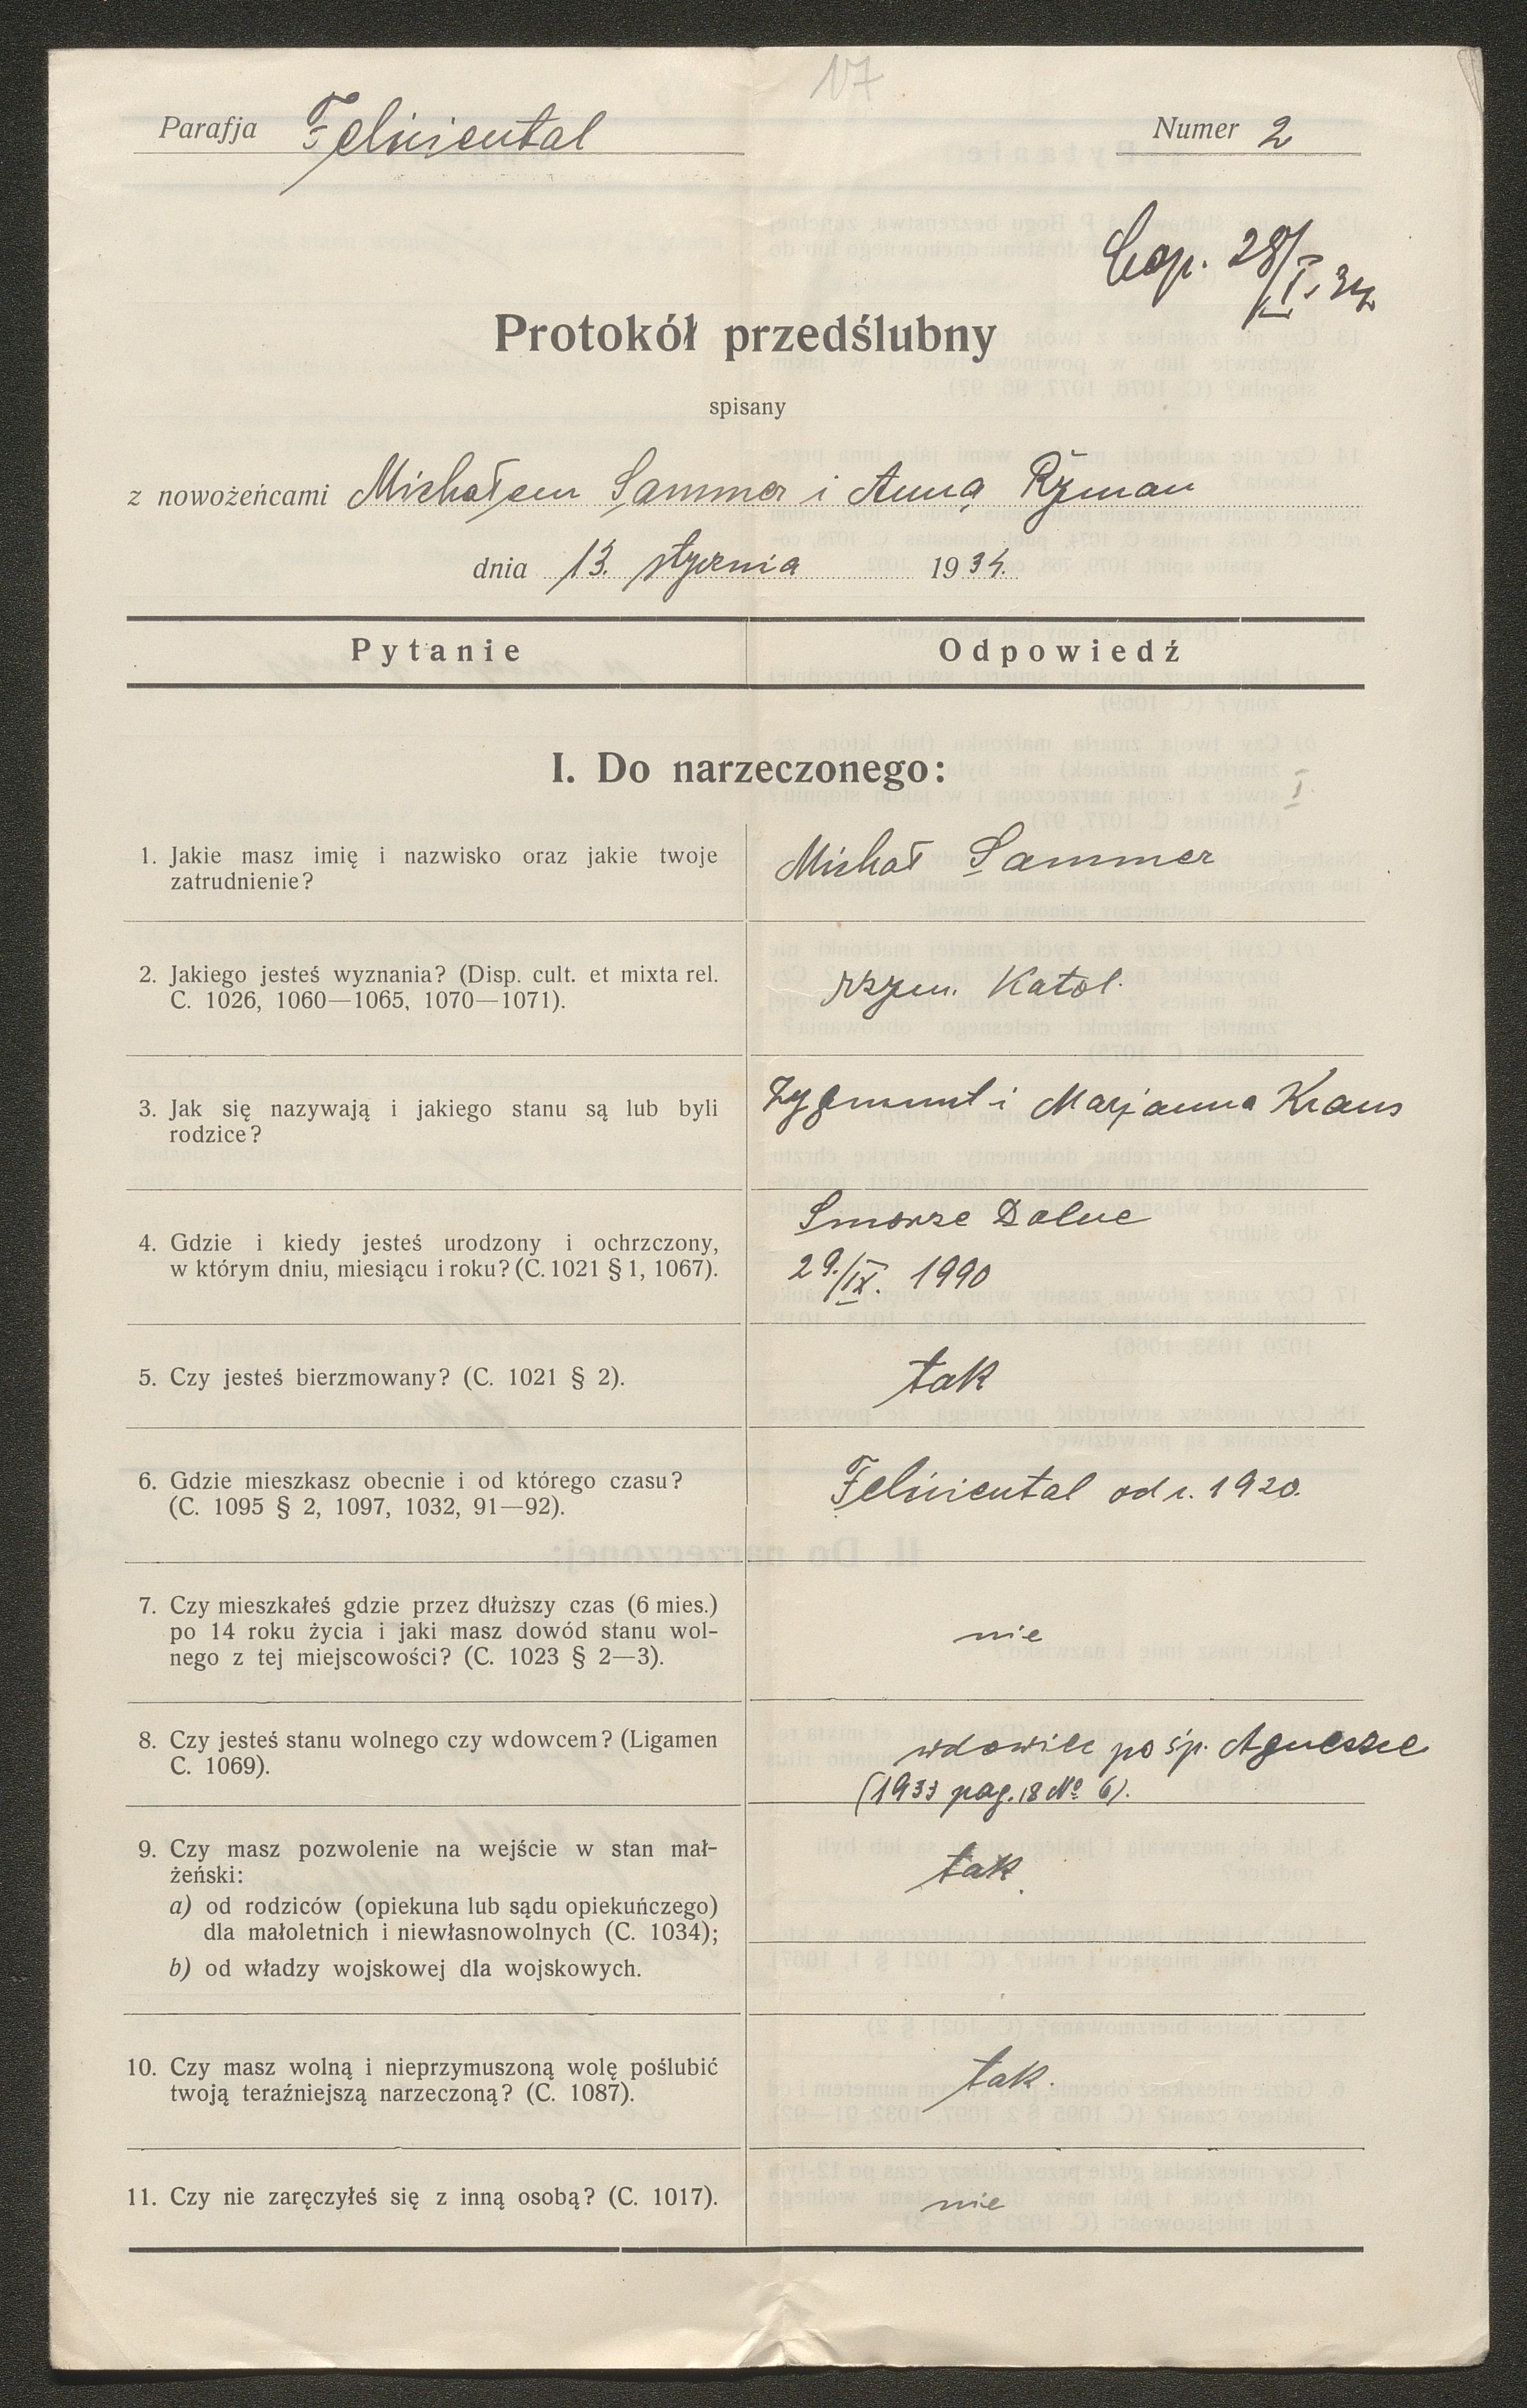 17
Parafja Feliciental Numer 2
Cop. 28/I. 34
Protokół przedślubny
spisany
z nowożeńcami Michałem Sammer i Anną Ryman
dnia 13. stycznia 1934.
Pytanie Odpowiedź
I. Do narzeczonego:
I.
1. Jakie masz imię i nazwisko oraz jakie twoje
zatrudnienie?
Michał Sammer
2. Jakiego jesteś wyznania? (Disp. cult. et mixta rel.
C. 1026, 1060—1065, 1070—1071).
rzym. Katol.
3. Jak się nazywają i jakiego stanu są lub byli
rodzice?
Zygmunt i Marjanna Kraus
4. Gdzie i kiedy jesteś urodzony i ochrzczony,
w którym dniu, miesiącu i roku? (C. 1021 § 1, 1067).
Smorze Dolne
29./IX. 1990
5. Czy jesteś bierzmowany? (C. 1021 § 2).
tak
6. Gdzie mieszkasz obecnie i od którego czasu?
(C. 1095 § 2, 1097, 1032, 91—92).
Feliciental od r. 1920.
7. Czy mieszkałeś gdzie przez dłuższy czas (6 mies.)
po 14 roku życia i jaki masz dowód stanu wol-
nego z tej miejscowości? (C. 1023 § 2—3).
nie
8. Czy jesteś stanu wolnego czy wdowcem? (Ligamen
C. 1069).
wdowiec po śp. Agnieszce
(1933 pag. 18 No 6).
9. Czy masz pozwolenie na wejście w stan mał-
żeński:
a) od rodziców (opiekuna lub sądu opiekuńczego)
dla małoletnich i niewłasnowolnych (C. 1034);
b) od władzy wojskowej dla wojskowych.
tak
10. Czy masz wolną i nieprzymuszoną wolę poślubić
twoją teraźniejszą narzeczoną? (C. 1087).
tak.
11. Czy nie zaręczyłeś się z inną osobą? (C. 1017).
nie